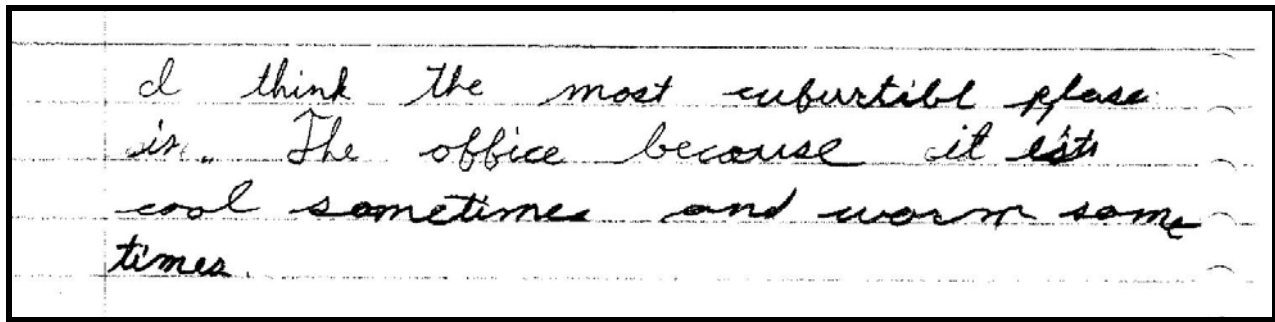 I think the most cufurtibl plase
is. The office because it is
cool sometimes and worm some
times.